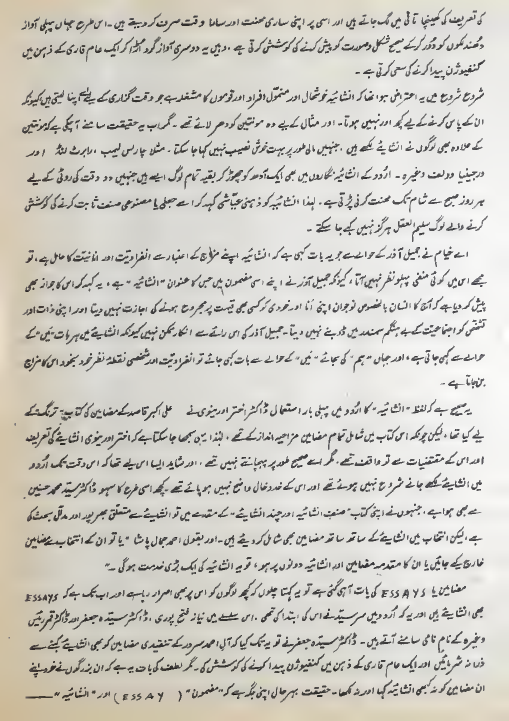 کی تعریف کی کھینچا تانی میں لگ جاتے ہیں اور اسی پر اپنی ساری محنت اور سارا وقت صرف کر دیتے ہیں ۔ اس طرح جہاں پہلی آواز
دھندلکوں کو دُور کر کے صحیح شکل و صورت کو پیش کرنے کی کوشش کرتی ہے ، وہیں یہ دوسری آواز گرد اڑا کر ایک عام قاری کے ذہن میں
کنفیوژن پیدا کرنے کی سعی کرتی ہے ۔
شروع شروع میں یہ اعتراض ہوا تھا کہ انشائیہ خوشحال اور متمول افراد اور قوموں کا مشغلہ ہے جو وقت گزاری کے لیے اپنا لیتی ہیں کیونکہ
ان کے پاس کرنے کے لیے کچھ اور نہیں ہوتا ۔ اور مثال کے لیے وہ مونتین کو دھر لاتے تھے ۔ مگر اب یہ حقیقت سامنے آ چکی ہے کہ مونتین
کے علاوہ بھی لوگوں نے انشائیے لکھے ہیں ، جنہیں مالی طور پر بہت خوش نصیب نہیں کہا جا سکتا ۔ مثلاً چارلس لیمب ، رابرٹ لنڈ اور
ورجینیا وولف وغیرہ ۔ اُردو کے انشائیہ نگاروں میں بھی ایک آدھ کو چھوڑ کر بقیہ تمام لوگ ایسے ہیں جنہیں دو وقت کی روٹی کے لیے
ہر روز صبح سے شام تک محنت کرنی پڑتی ہے ۔ لہٰذا انشائیہ کو ذہنی عیاشی کہہ کر اسے جعلی یا مصنوعی صنف ثابت کرنے کی کوشش
کرنے والے لوگ سلیم العقل ہرگز نہیں کہے جا سکتے ۔
اے خیام نے جمیل آذر کے حوالے سے جو یہ بات کہی ہے کہ انشائیہ اپنے مزاج کے اعتبار سے انفرادیت اور انانیت کا حامل ہے ، تو
مجھے اس میں کوئی منفی پہلو نظر نہیں آتا ، کیونکہ جمیل آذر نے اپنے اسی مضمون میں جس کا عنوان " انشائیہ " ہے ، یہ کہہ کر اس کا جواز بھی
پیش کر دیا ہے کہ آج کا انسان بالخصوص نوجوان اپنی انا اور خودی کو کسی بھی قیمت پر مجروح ہونے کی اجازت نہیں دیتا اور اپنی ذات اور
تشخص کو اجتماعیت کے بے ہنگم سمندر میں ڈوبنے نہیں دیتا ۔ جمیل آذر کی اس رائے سے انکار ممکن نہیں کیونکہ انشائیے میں ہر بات " میں " کے
حوالے سے کہی جاتی ہے ، اور جہاں " ہم " کی بجائے " میں " کے حوالے سے بات کہی جائے تو انفرادیت اور شخصی نقطۂ نظر خود بخود اس کا مزاج
بن جاتا ہے ۔
یہ صحیح ہے کہ لفظ " انشائیہ " کا اُردو میں پہلی بار استعمال ڈاکٹر اختر اورینوی نے علی اکبر قاصد کے مضامین کی کتاب " ترنگ " کے
لیے کیا تھا ، لیکن چونکہ اس کتاب میں شامل تمام مضامین مزاحیہ انداز کے تھے ، لہٰذا یہی سمجھا جا سکتا ہے کہ اختر اورینوی انشائیے کی تعریف
اور اس کے مقتضیات سے تو واقف تھے ، مگر اسے صحیح طور پر پہچانتے نہیں تھے ، اور شاید ایسا اس لیے تھا کہ اس وقت تک اُردو
میں انشائیے لکھے جانے شروع نہیں ہوئے تھے اور اس کے خدوخال واضح نہیں ہو پائے تھے ۔ کچھ اسی طرح کا سہو ڈاکٹر سید محمد حسنین
سے بھی ہوا ہے ، جنہوں نے اپنی کتاب " صنفِ انشائیہ اور چند انشائیے " کے مقدمے میں تو انشائیے سے متعلق بھرپور اور مدلل بحث کی
ہے لیکن انتخاب میں انشائیے کے ساتھ ساتھ مضامین بھی شامل کر دیئے ہیں ۔ اور بقول احمد جمال پاشا " یا تو ان کے انتخاب سے مضامین
خارج کیے جائیں یا ان کا مقدمہ مضامین اور انشائیہ دونوں پر ہو ، تو یہ انشائیہ کی ایک بڑی خدمت ہوگی ۔ "
مضامین یا ESSAYS کی بات آ ہی گئی ہے تو یہ کہتا چلوں کہ کچھ لوگوں کو اس پر بھی اصرار رہا ہے اور اب تک ہے کہ ESSAYS
بھی انشائیے ہیں اور یہ کہ اُردو میں سرسید نے اس کی ابتدا کی تھی ، اس سلسلے میں نیاز فتح پوری ، ڈاکٹر سیدہ جعفر اور ڈاکٹر قمر رئیس
وغیرہ کے نام نامی سامنے آتے ہیں ۔ ڈاکٹر سیدہ جعفر نے تو یہ تک کیا کہ آل احمد سرور کے تنقیدی مضامین کو بھی انشائیے کہنے سے
ذرا نہ شرمائیں اور ایک عام قاری کے ذہن میں کنفیوژن پیدا کرنے کی کوشش کی ۔ مگر لطف کی بات یہ ہے کہ ان بزرگوں نے خود اپنے
ان مضامین کو نہ کبھی انشائیہ کہا اور نہ لکھا ۔ حقیقت بہرحال اپنی جگہ ہے کہ " مضمون " ( ESSAY ) اور " انشائیہ " ——